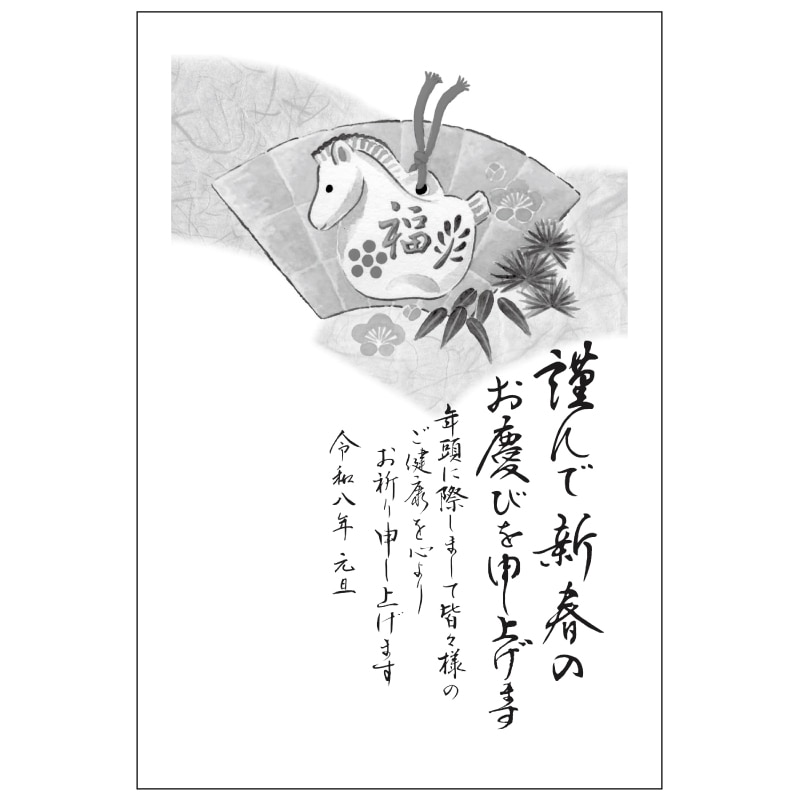 福
謹んで新春の
お慶びを申し上げます
年頭に際しまして皆々様の
ご健康を心より
お祈り申し上げます
令和八年 元旦